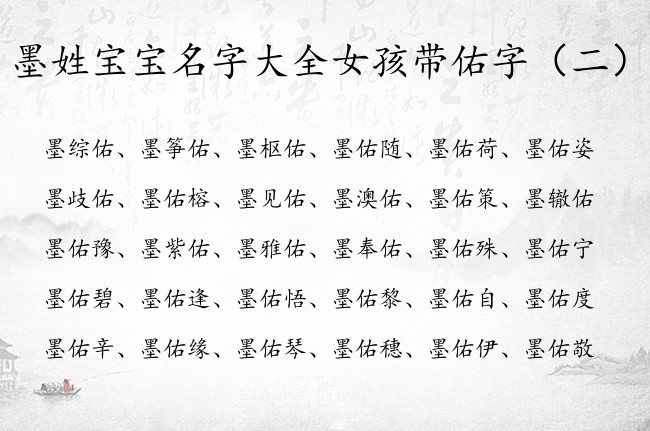 墨姓宝宝名字大全女孩带佑字（二）
墨综佑、墨筝佑、墨枢佑、墨佑随、墨佑荷、墨佑姿
墨歧佑、墨佑榕、墨见佑、墨澳佑、墨佑策、墨辙佑
墨佑豫、墨紫佑、墨雅佑、墨奉佑、墨佑殊、墨佑宁
墨佑碧、墨佑逢、墨佑悟、墨佑黎、墨佑自、墨佑度
墨佑辛、墨佑缘、墨佑琴、墨佑穗、墨佑伊、墨佑敬